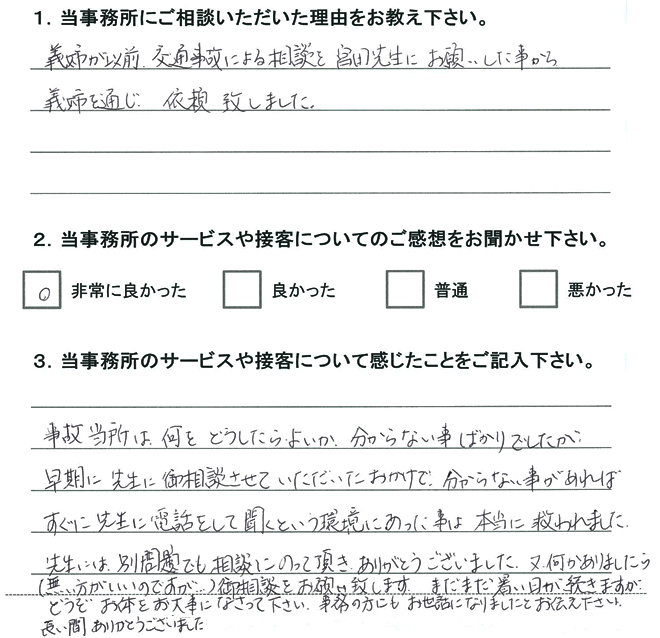 1．当事務所にご相談いただいた理由をお教え下さい。
義姉が以前、交通事故による相談を宮田先生にお願いした事から
義姉を通じ 依頼致しました。
2．当事務所のサービスや接客についてのご感想をお聞かせ下さい。
○ 非常に良かった 良かった 普通 悪かった
3．当事務所のサービスや接客について感じたことをご記入下さい。
事故当所は、何を どうしたらよいか、分からない事ばかりでしたが、
早期に先生に御相談させていただいたおかげで、分からない事があれば
すぐに先生に電話をして聞くという環境にあった事は本当に救われました。
先生には、別問題でも相談にのって頂き、ありがとうございました。又、何かありましたら
(無い方がいいのですが…)御相談をお願い致します。まだまだ暑い日が続きますが、
どうぞ お体をお大事になさって下さい。事務の方にもお世話になりましたとお伝え下さい。
長い間ありがとうございました